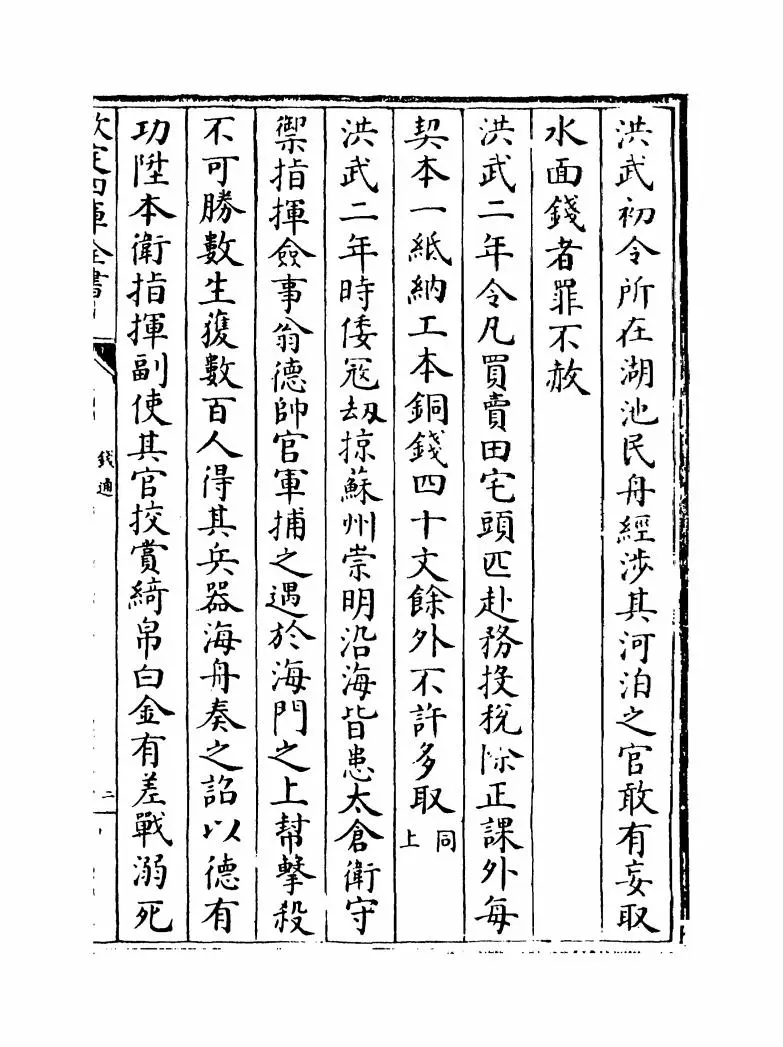 洪武初令所在湖池民舟經涉其河泊之官敢有妄取
水面錢者罪不赦
洪武二年令凡買賣田宅頭匹赴務投稅除正課外每
契本一紙納工本銅錢四十文餘外不許多取同上
洪武二年時倭冦刼掠蘇州崇明沿海皆患太倉衛守
禦指揮僉事翁德帥官軍捕之遇於海門之上幇擊殺
不可勝數生獲數百人得其兵器海舟奏之詔以德有
功陞本衛指揮副使其官挍賞綺帛白金有差戰溺死
欽定四庫全書
錢通
二